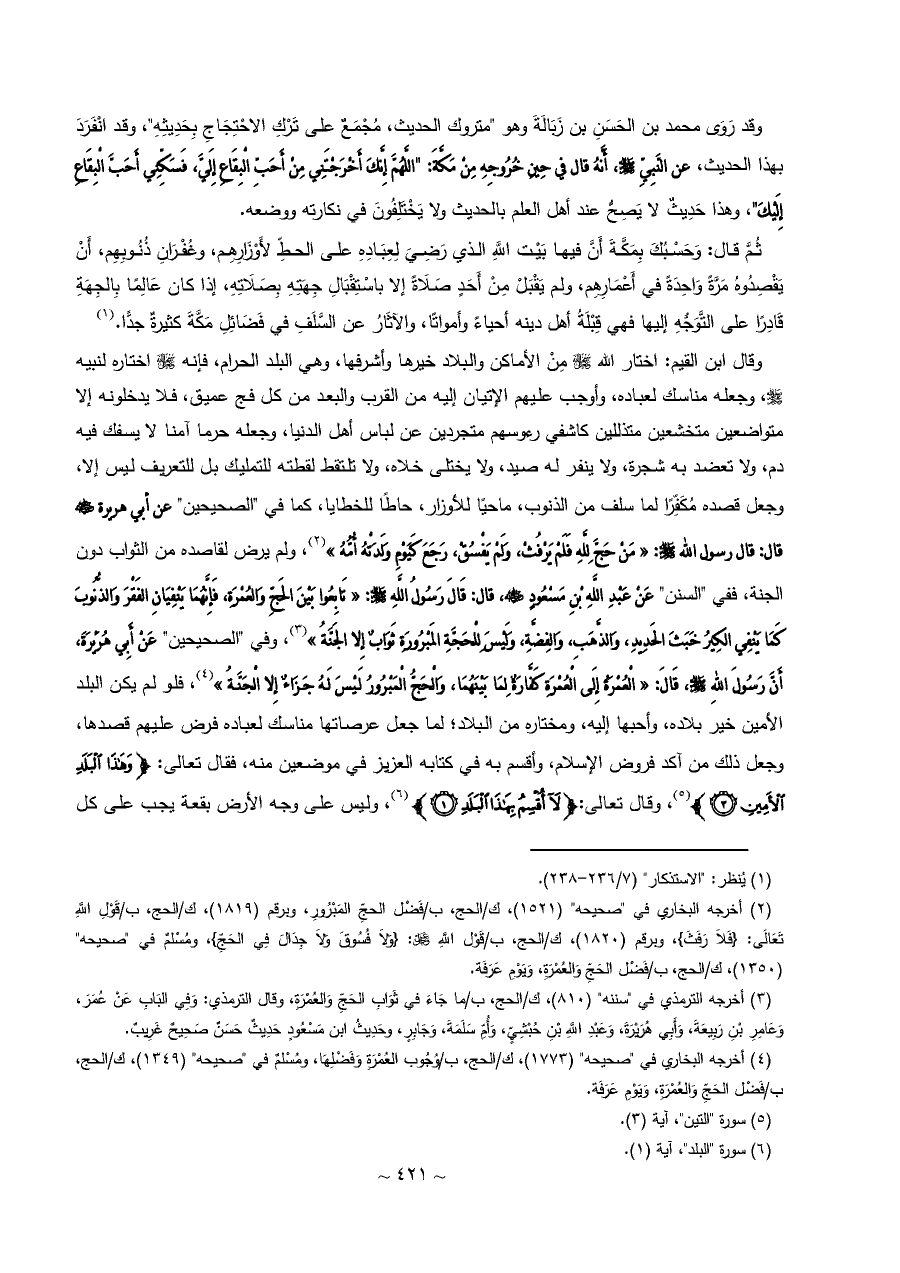 وقد رَوَى محمد بن الحَسَنِ بن زَبَالَةَ وهو "متروك الحديث، مُجْمَعٌ على تَرْكِ الاحْتِجَاجِ بِحَدِيثِهِ"، وقد انْفَرَدَ
بهذا الحديث، عن النَّبِيِّ ﷺ، أَنَّهُ قال في حِينِ خُرُوجِهِ مِنْ مَكَّةَ: "اللَّهُمَّ إِنَّكَ أَخْرَجْتَنِي مِنْ أَحَبِّ الْبِقَاعِ إِلَيَّ، فَسَكِّنِّي أَحَبَّ الْبِقَاعِ
إِلَيْكَ"، وهذا حَدِيثٌ لا يَصِحُّ عند أهل العلم بالحديث ولا يَخْتَلِفُونَ في نكارته ووضعه.
ثُمَّ قال: وَحَسْبُكَ بِمَكَّةَ أَنَّ فيها بَيْت اللَّهِ الذي رَضِيَ لِعِبَادِهِ على الحطِّ لأَوْزَارِهِم، وغُفْرَانِ ذُنُوبِهِم، أَنْ
يَقْصِدُوهُ مَرَّةً وَاحِدَةً في أَعْمَارِهِم، ولم يَقْبَلْ مِنْ أَحَدٍ صَلَاةً إلا باسْتِقْبَالِ جِهَتِهِ بِصَلَاتِهِ، إذا كان عَالِمًا بِالجِهَةِ
قَادِرًا على التَّوَجُّهِ إليها فهي قِبْلَةُ أهل دينه أحياءً وأمواتًا، والآثَارُ عن السَّلَفِ في فَضَائِلِ مَكَّةَ كثيرةٌ جدًّا.(١)
وقال ابن القيم: اختار الله ﷻ مِنْ الأماكن والبلاد خيرها وأشرفها، وهي البلد الحرام، فإنه ﷻ اختاره لنبيه
ﷺ، وجعله مناسك لعباده، وأوجب عليهم الإتيان إليه من القرب والبعد من كل فج عميق، فلا يدخلونه إلا
متواضعين متخشعين متذللين كاشفي رءوسهم متجردين عن لباس أهل الدنيا، وجعله حرما آمنا لا يسفك فيه
دم، ولا تعضد به شجرة، ولا ينفر له صيد، ولا يختلى خلاه، ولا تلتقط لقطته للتمليك بل للتعريف ليس إلا،
وجعل قصده مُكَفِّرًا لما سلف من الذنوب، ماحيًا للأوزار، حاطًا للخطايا، كما في "الصحيحين" عن أبي هريرة ﷺ
قال: قال رسول الله ﷺ: « مَنْ حَجَّ لِلَّهِ فَلَمْ يَرْفُثْ، وَلَمْ يَفْسُقْ، رَجَعَ كَيَوْمِ وَلَدَتْهُ أُمُّهُ »(٢)، ولم يرض لقاصده من الثواب دون
الجنة، ففي "السنن" عَنْ عَبْدِ اللَّهِ بْنِ مَسْعُودٍ ﷺ، قال: قَالَ رَسُولُ اللَّهِ ﷺ: « تَابِعُوا بَيْنَ الحَجِّ وَالعُمْرَةِ، فَإِنَّهُمَا يَنْفِيَانِ الفَقْرَ وَالذُّنُوبَ
كَمَا يَنْفِي الكِيرُ خَبَثَ الحَدِيدِ، وَالذَّهَبِ، وَالفِضَّةِ، وَلَيْسَ لِلْحَجَّةِ المَبْرُورَةِ ثَوَابٌ إِلا الجَنَّةُ »(٣)، وفي "الصحيحين" عَنْ أَبِي هُرَيْرَةَ،
أَنَّ رَسُولَ اللهِ ﷺ، قَالَ: « الْعُمْرَةُ إِلَى الْعُمْرَةِ كَفَّارَةٌ لِمَا بَيْنَهُمَا، وَالْحَجُّ الْمَبْرُورُ لَيْسَ لَهُ جَزَاءٌ إِلا الْجَنَّةُ »(٤)، فلو لم يكن البلد
الأمين خير بلاده، وأحبها إليه، ومختاره من البلاد؛ لما جعل عرصاتها مناسك لعباده فرض عليهم قصدها،
وجعل ذلك من آكد فروض الإسلام، وأقسم به في كتابه العزيز في موضعين منه، فقال تعالى: ﴿ وَهَٰذَا ٱلْبَلَدِ
ٱلْأَمِينِ ۝٣ ﴾(٥)، وقال تعالى:﴿ لَآ أُقْسِمُ بِهَٰذَا ٱلْبَلَدِ ۝١ ﴾(٦)، وليس على وجه الأرض بقعة يجب على كل
(١) يُنظر: "الاستذكار" (٧/٢٣٦-٢٣٨).
(٢) أخرجه البخاري في "صحيحه" (١٥٢١)، ك/الحج، ب/فَضْل الحجِّ المَبْرُورِ، وبرقم (١٨١٩)، ك/الحج، ب/قَوْلِ اللَّهِ
تَعَالَى: {فَلاَ رَفَثَ}، وبرقم (١٨٢٠)، ك/الحج، ب/قَوْل اللَّهِ ﷻ: {وَلاَ فُسُوقَ وَلاَ جِدَالَ فِي الحَجِّ}، ومُسْلمٌ في "صحيحه"
(١٣٥٠)، ك/الحج، ب/فَضْل الحَجِّ وَالعُمْرَةِ، وَيَوْمِ عَرَفَة.
(٣) أخرجه الترمذي في "سننه" (٨١٠)، ك/الحج، ب/ما جَاءَ في ثَوَابِ الحَجِّ وَالعُمْرَةِ، وقال الترمذي: وَفِي البَابِ عَنْ عُمَرَ،
وَعَامِرِ بْنِ رَبِيعَةَ، وَأَبِي هُرَيْرَةَ، وَعَبْدِ اللَّهِ بْنِ حُبْشِيٍّ، وَأُمِّ سَلَمَةَ، وَجَابِرٍ، وحَدِيثُ ابن مَسْعُودٍ حَدِيثٌ حَسَنٌ صَحِيحٌ غَرِيبٌ.
(٤) أخرجه البخاري في "صحيحه" (١٧٧٣)، ك/الحج، ب/وُجُوب العُمْرَةِ وَفَضْلِهَا، ومُسْلمٌ في "صحيحه" (١٣٤٩)، ك/الحج،
ب/فَضْل الحَجِّ وَالعُمْرَةِ، وَيَوْمِ عَرَفَة.
(٥) سورة "التين"، آية (٣).
(٦) سورة "البلد"، آية (١).
~ ٤٢١ ~